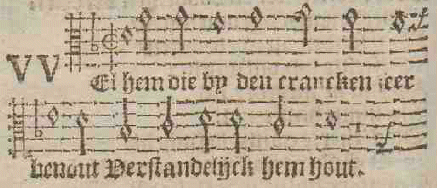 VVEl hem die by den crancken zeer
benout Verstandelijck hem hout.